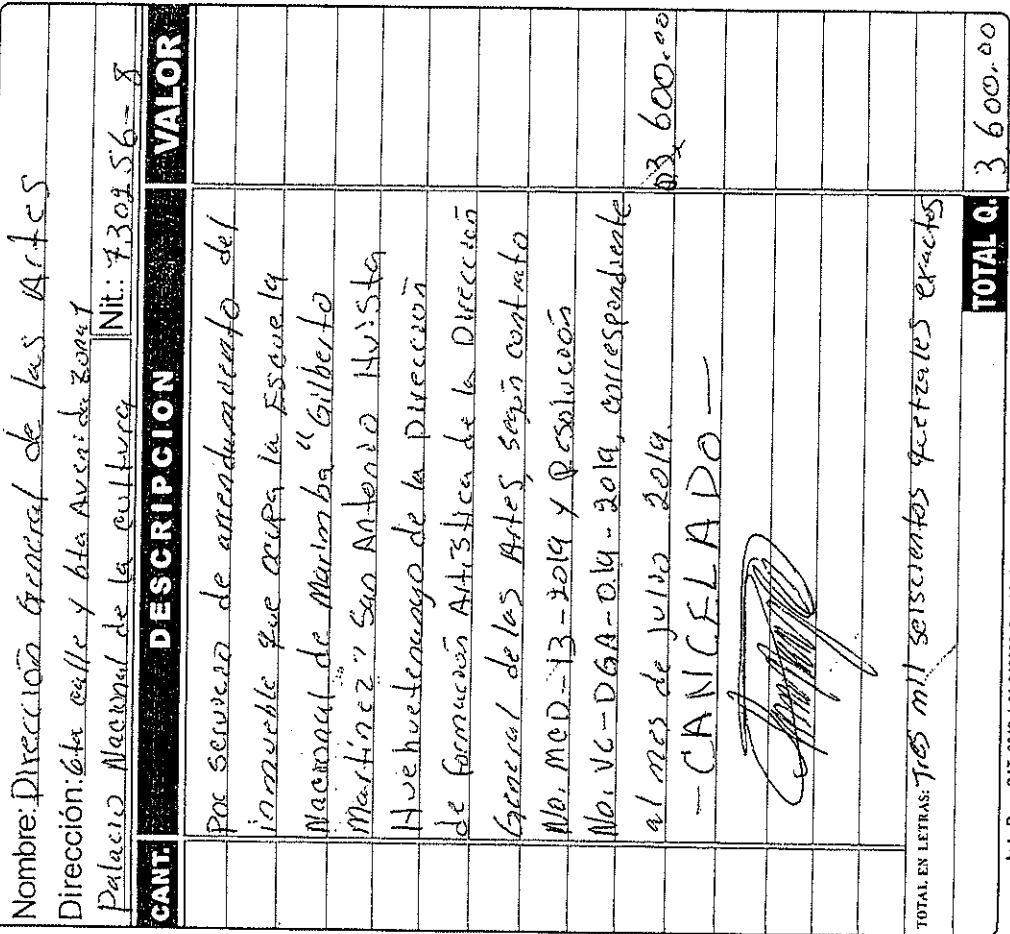 Nombre: Dirección General de las Artes
Dirección: 6ta calle y 6ta Avenida zona 1
Palacio Nacional de la cultura Nit.: 730256-8
CANT. DESCRIPCION VALOR
Por servicio de arrendamiento del
inmueble que ocupa la Escuela
Nacional de Marimba "Gilberto
Martínez" San Antonio Huista
Huehuetenango de la Dirección
de formación Artística de la Dirección
General de las Artes, según contrato
No. MCD-13-2019 y Resolución
No. VC-DGA-019-2019, correspondiente
al mes de julio 2019. Q3,600.00
- CANCELADO -
TOTAL EN LETRAS: Tres mil seiscientos quetzales exactos
TOTAL Q. 3,600.00